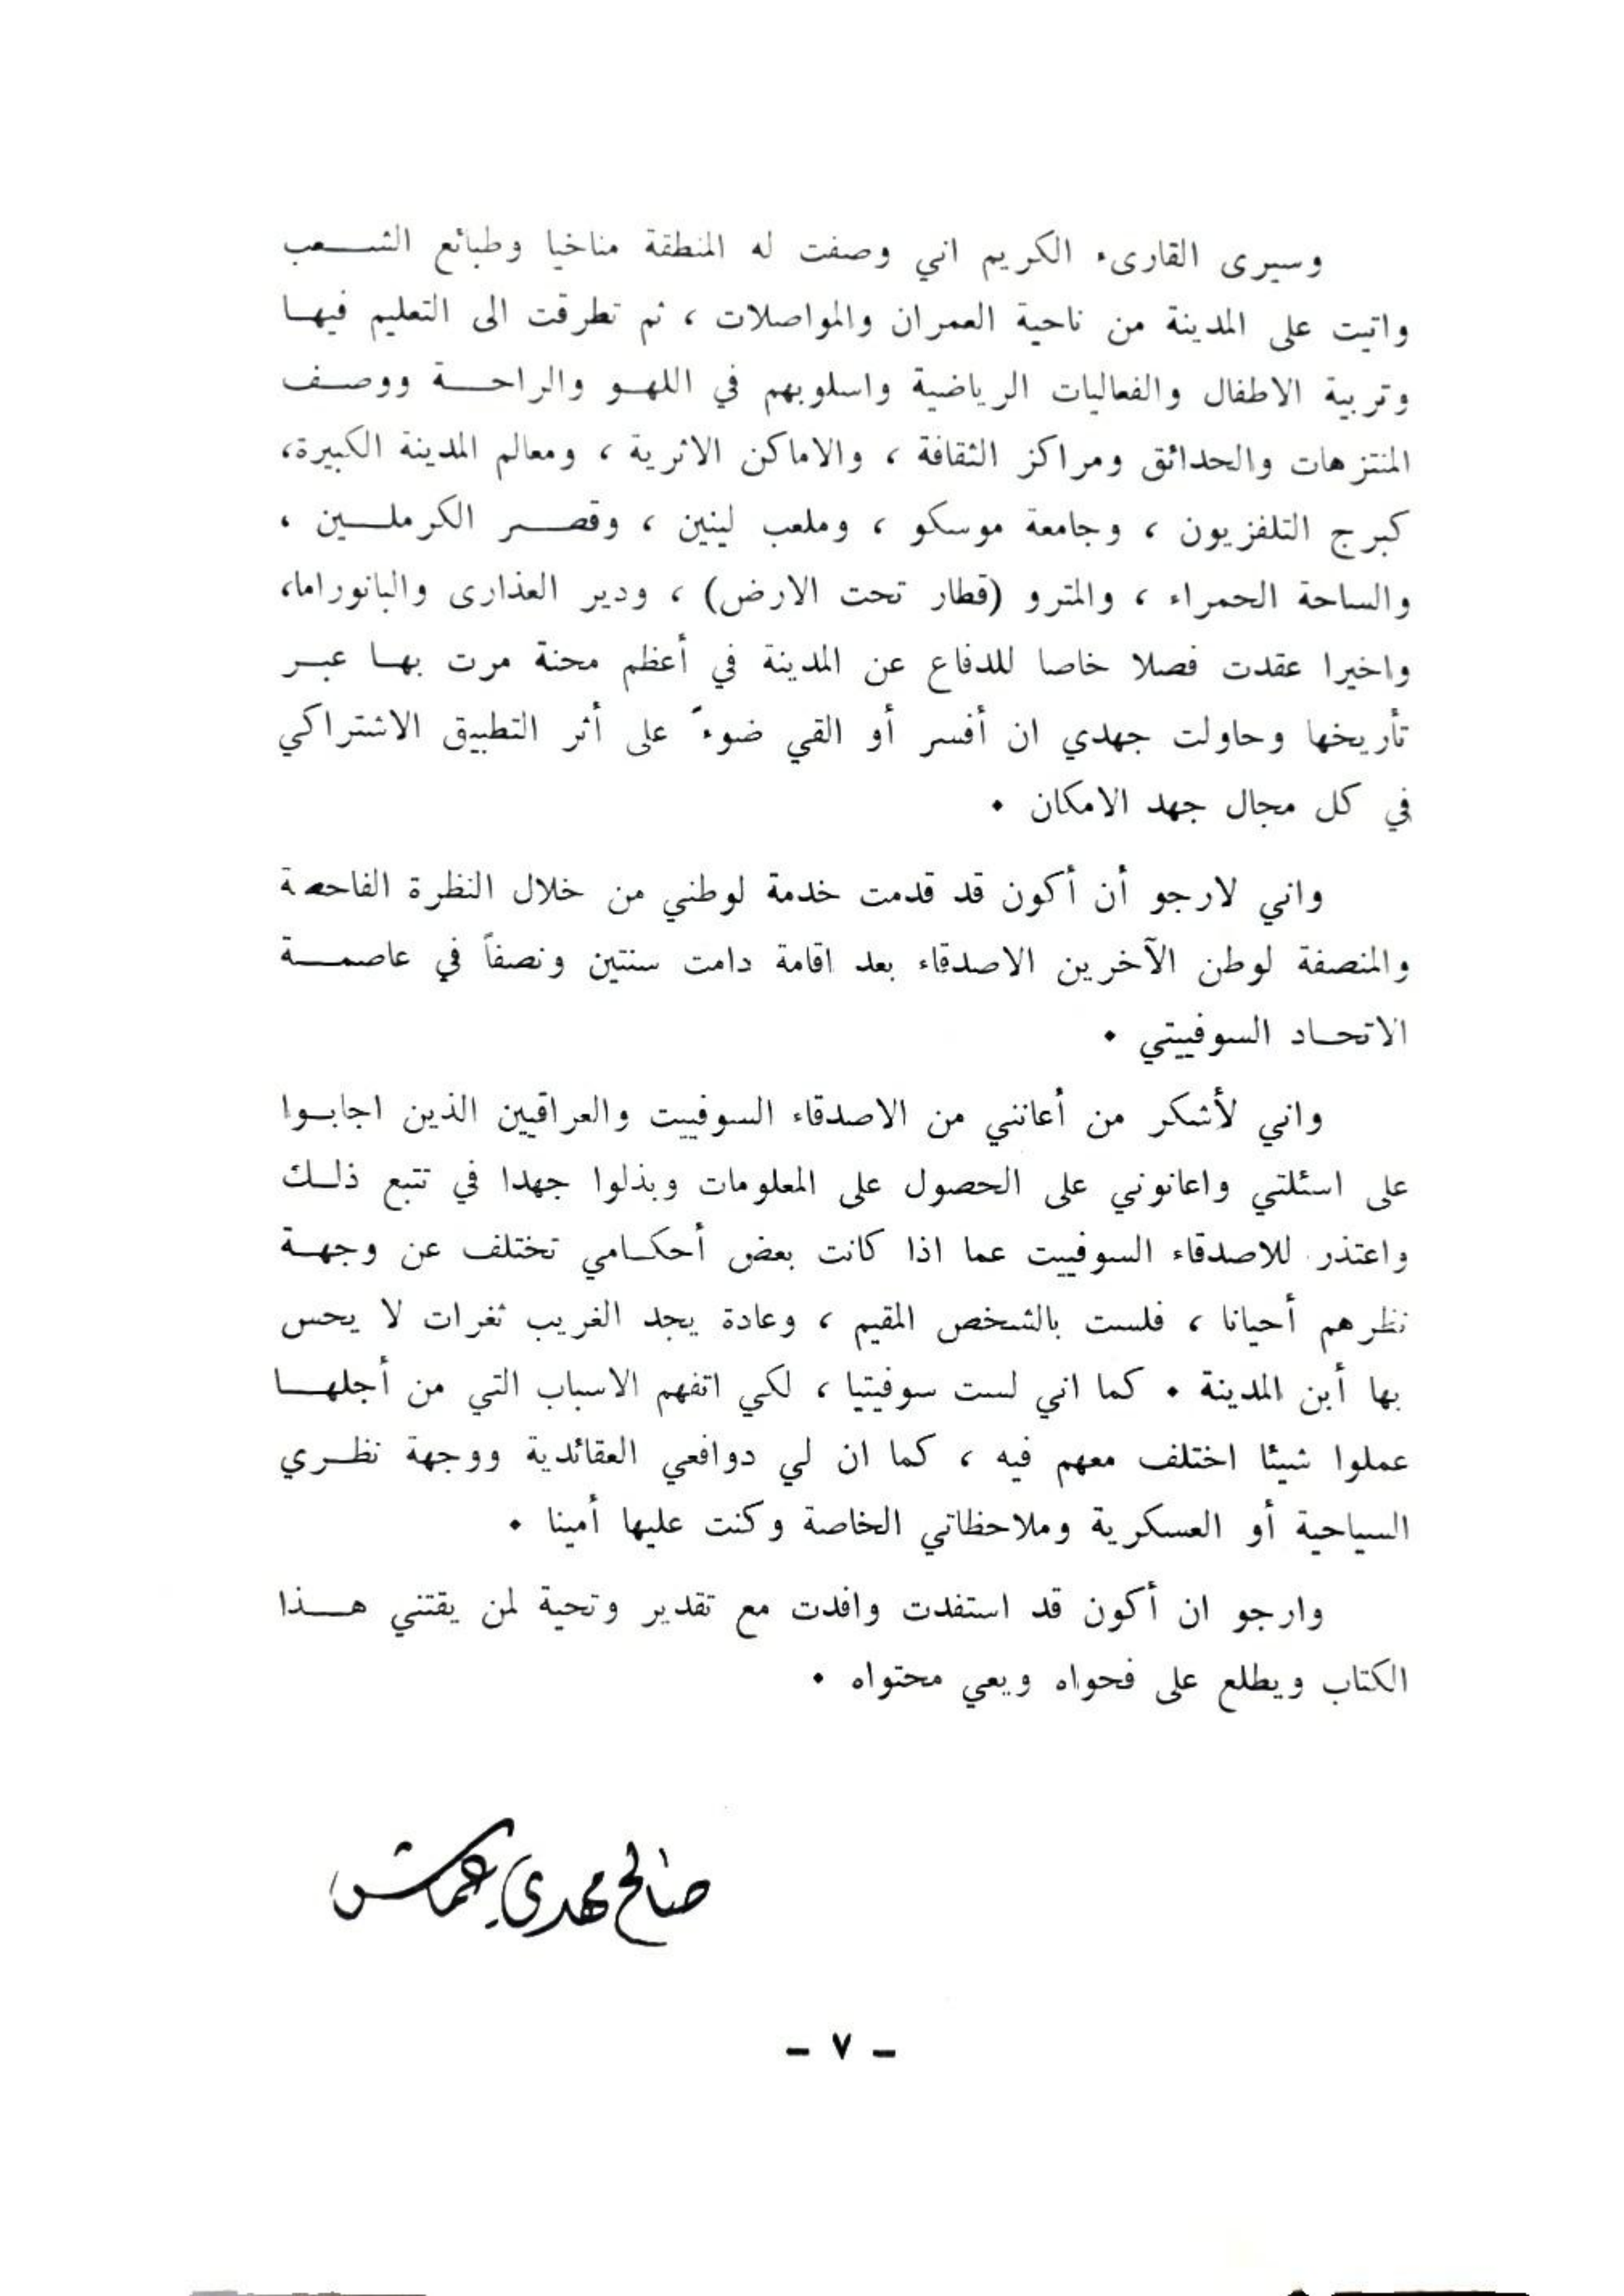 وسيرى القارىء الكريم اني وصفت له المنطقة مناخيا وطبائع الشعب
واتيت على المدينة من ناحية العمران والمواصلات ، ثم تطرقت الى التعليم فيها
وتربية الاطفال والفعاليات الرياضية واسلوبهم في اللهو والراحة ووصف
المنتزهات والحدائق ومراكز الثقافة ، والاماكن الاثرية ، ومعالم المدينة الكبيرة،
كبرج التلفزيون ، وجامعة موسكو ، وملعب لينين ، وقصر الكرملين ،
والساحة الحمراء ، والمترو (قطار تحت الارض) ، ودير العذارى والبانوراما،
واخيرا عقدت فصلا خاصا للدفاع عن المدينة في أعظم محنة مرت بها عبر
تأريخها وحاولت جهدي ان أفسر أو القي ضوءً على أثر التطبيق الاشتراكي
في كل مجال جهد الامكان .
واني لارجو أن أكون قد قدمت خدمة لوطني من خلال النظرة الفاحصة
والمنصفة لوطن الآخرين الاصدقاء بعد اقامة دامت سنتين ونصفاً في عاصمة
الاتحاد السوفييتي .
واني لأشكر من أعانني من الاصدقاء السوفييت والعراقيين الذين اجابوا
على اسئلتي واعانوني على الحصول على المعلومات وبذلوا جهدا في تتبع ذلك
واعتذر للاصدقاء السوفييت عما اذا كانت بعض أحكامي تختلف عن وجهة
نظرهم أحيانا ، فلست بالشخص المقيم ، وعادة يجد الغريب ثغرات لا يحس
بها أبن المدينة . كما اني لست سوفيتيا ، لكي اتفهم الاسباب التي من أجلها
عملوا شيئا اختلف معهم فيه ، كما ان لي دوافعي العقائدية ووجهة نظري
السياحية أو العسكرية وملاحظاتي الخاصة وكنت عليها أمينا .
وارجو ان أكون قد استفدت وافدت مع تقدير وتحية لمن يقتني هذا
الكتاب ويطلع على فحواه ويعي محتواه .
صالح مهدي عماش
- ٧ -